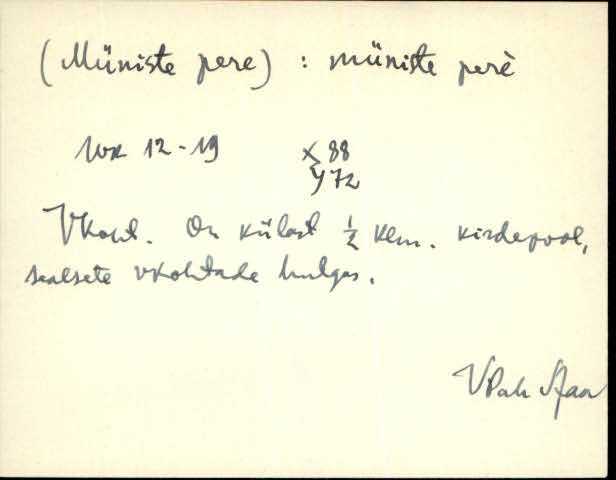 (Müniste pere) : müniste perè
12-19 X 88
Y 72
Vkoht. On külast ½ klm. kirdepool,
sealsete vkohtade hulgas.